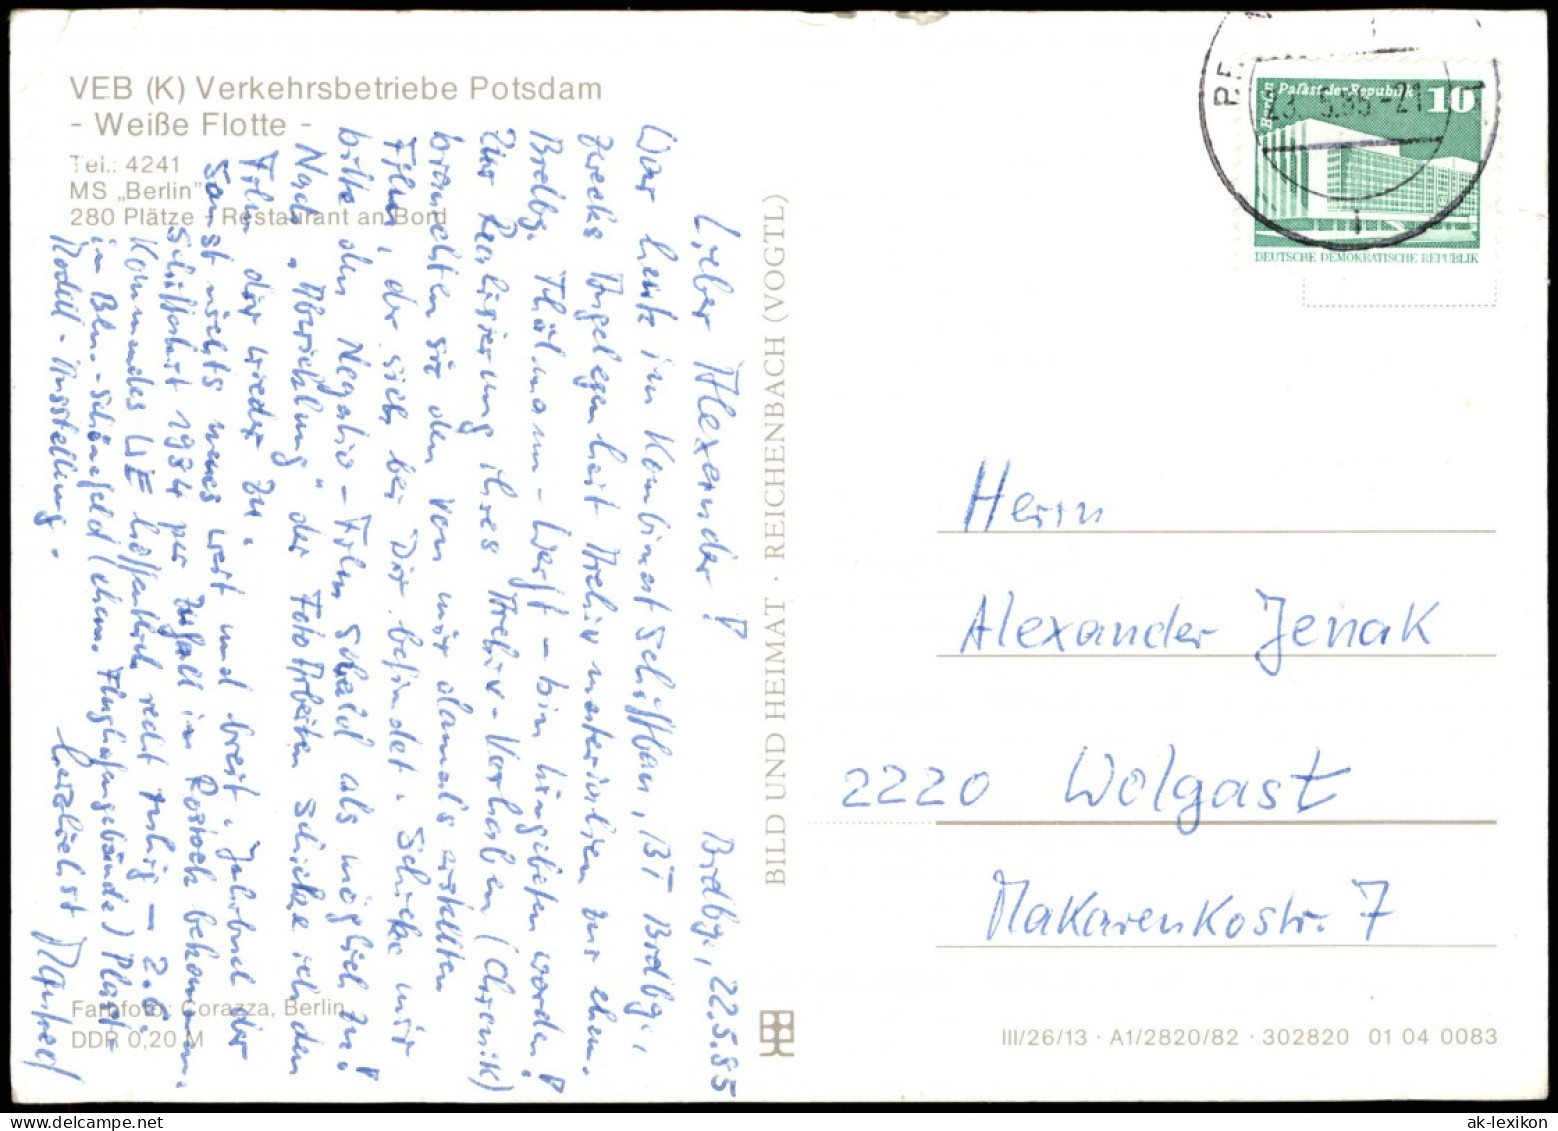 VEB (K) Verkehrsbetriebe Potsdam
- Weiße Flotte -
Tel.: 4241
MS „Berlin"
280 Plätze - Restaurant an Bord
Brdbg., 22.5.85
Lieber Alexander!
War heute im Kombinat Schiffbau, BT Brdbg.,
zwecks Angelegenheit Archivmaterialien zur ehem.
Brdbg. Thälmann-Werft - bin hingebeten worden!
Zur Realisierung ihres Archiv-Vorhaben (Chronik)
brauchten sie den von mir damals erstellten
Film, der sich bei Dir befindet. Schicke mir
bitte den Negativ-Film sobald als möglich zu!
Nach „Abwicklung" der Foto Arbeiten schicke ich den
Film dir wieder zu.
Sonst nichts neues weit und breit. Jahrbuch der
Schiffahrt 1984 per Zufall in Rostock bekommen.
Kommendes WE hoffentlich recht ruhig - 2.6.
in Bln.-Schönefeld (ehem. Flughafengebäude) Plast-
Modell-Ausstellung.
herzlichst Manfred
Farbfoto: Corazza, Berlin
DDR 0,20 M
BILD UND HEIMAT · REICHENBACH (VOGTL)
Berlin Palast der Republik 10
DEUTSCHE DEMOKRATISCHE REPUBLIK
23.5.85-21
1
Herrn
Alexander Jenak
2220 Wolgast
Makarenkostr. 7
III/26/13 · A1/2820/82 · 302820 01 04 0083
ak-lexikon